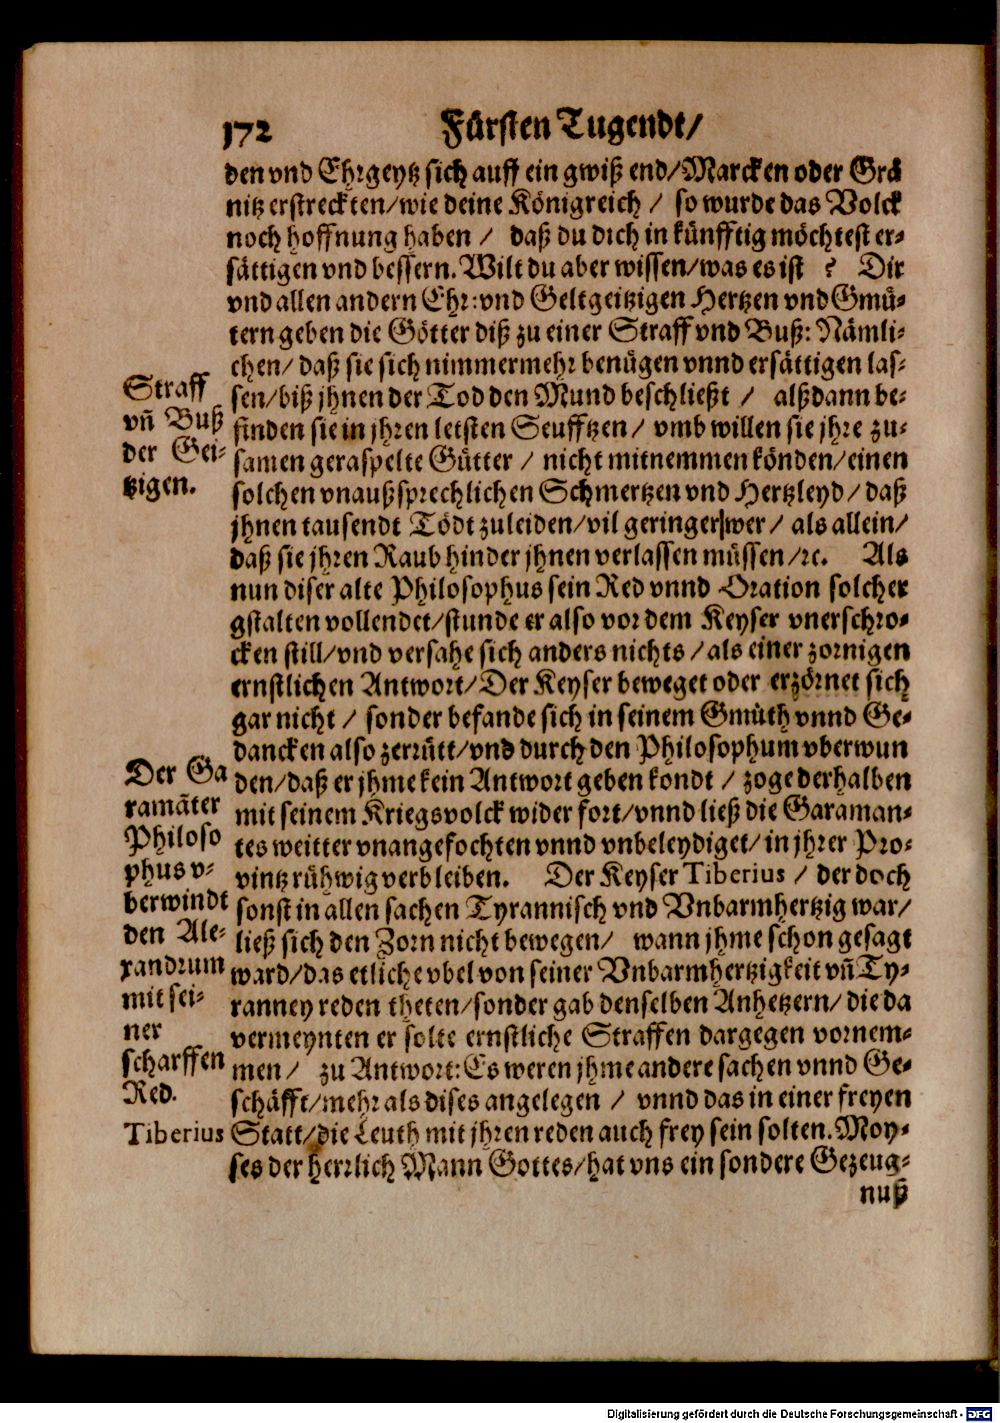 172 Fürsten Tugendt/
den vnd Ehrgeytz sich auff ein gwiß end/Marcken oder Grä
nitz erstreckten/wie deine Königreich / so wurde das Volck
noch hoffnung haben / daß du dich in künfftig möchtest er-
sättigen vnd bessern. Wilt du aber wissen/was es ist ? Dir
vnd allen andern Ehr: vnd Geltgeitzigen Hertzen vnd Gmü-
tern geben die Götter diß zu einer Straff vnd Buß: Nämli-
chen/ daß sie sich nimmermehr benügen vnnd ersättigen las-
sen/biß jhnen der Tod den Mund beschließt / alßdann be-
finden sie in jhren letsten Seufftzen/ vmb willen sie jhre zu-
samen geraspelte Gütter / nicht mitnemmen könden/einen
solchen vnaußsprechlichen Schmertzen vnd Hertzleyd/ daß
jhnen tausendt Tödt zuleiden/vil geringer wer/ als allein/
daß sie jhren Raub hinder jhnen verlassen müssen/ꝛc. Als
nun diser alte Philosophus sein Red vnnd Oration solcher
gstalten vollendet/stunde er also vor dem Keyser vnerschro-
cken still/vnd versahe sich anders nichts/als einer zornigen
ernstlichen Antwort/Der Keyser beweget oder erzörnet sich
gar nicht / sonder befande sich in seinem Gmüth vnnd Ge-
dancken also zerrütt/vnd durch den Philosophum vberwun
den/daß er jhme kein Antwort geben kondt / zoge derhalben
mit seinem Kriegsvolck wider fort/vnnd ließ die Garaman-
tes weitter vnangefochten vnnd vnbeleydiget/in jhrer Pro-
vintz rühwig verbleiben. Der Keyser Tiberius / der doch
sonst in allen sachen Tyrannisch vnd Vnbarmhertzig war/
ließ sich den Zorn nicht bewegen/ wann jhme schon gesagt
ward/das etliche vbel von seiner Vnbarmhertzigkeit vñ Ty-
ranney reden theten/sonder gab denselben Anhetzern/die da
vermeynten er solte ernstliche Straffen dargegen vornem-
men / zu Antwort: Es weren jhme andere sachen vnnd Ge-
schäfft/mehr als dises angelegen / vnnd das in einer freyen
Statt/die Leuth mit jhren reden auch frey sein solten. Moy-
ses der herrlich Mann Gottes/hat vns ein sondere Gezeug-
nuß
Straff
vñ Buß
der Gei-
tzigen.
Der Ga
ramāter
Philoso
phus v-
berwindt
den Ale-
xandrum
mit sei-
ner
scharffen
Red.
Tiberius
Digitalisierung gefördert durch die Deutsche Forschungsgemeinschaft - DFG